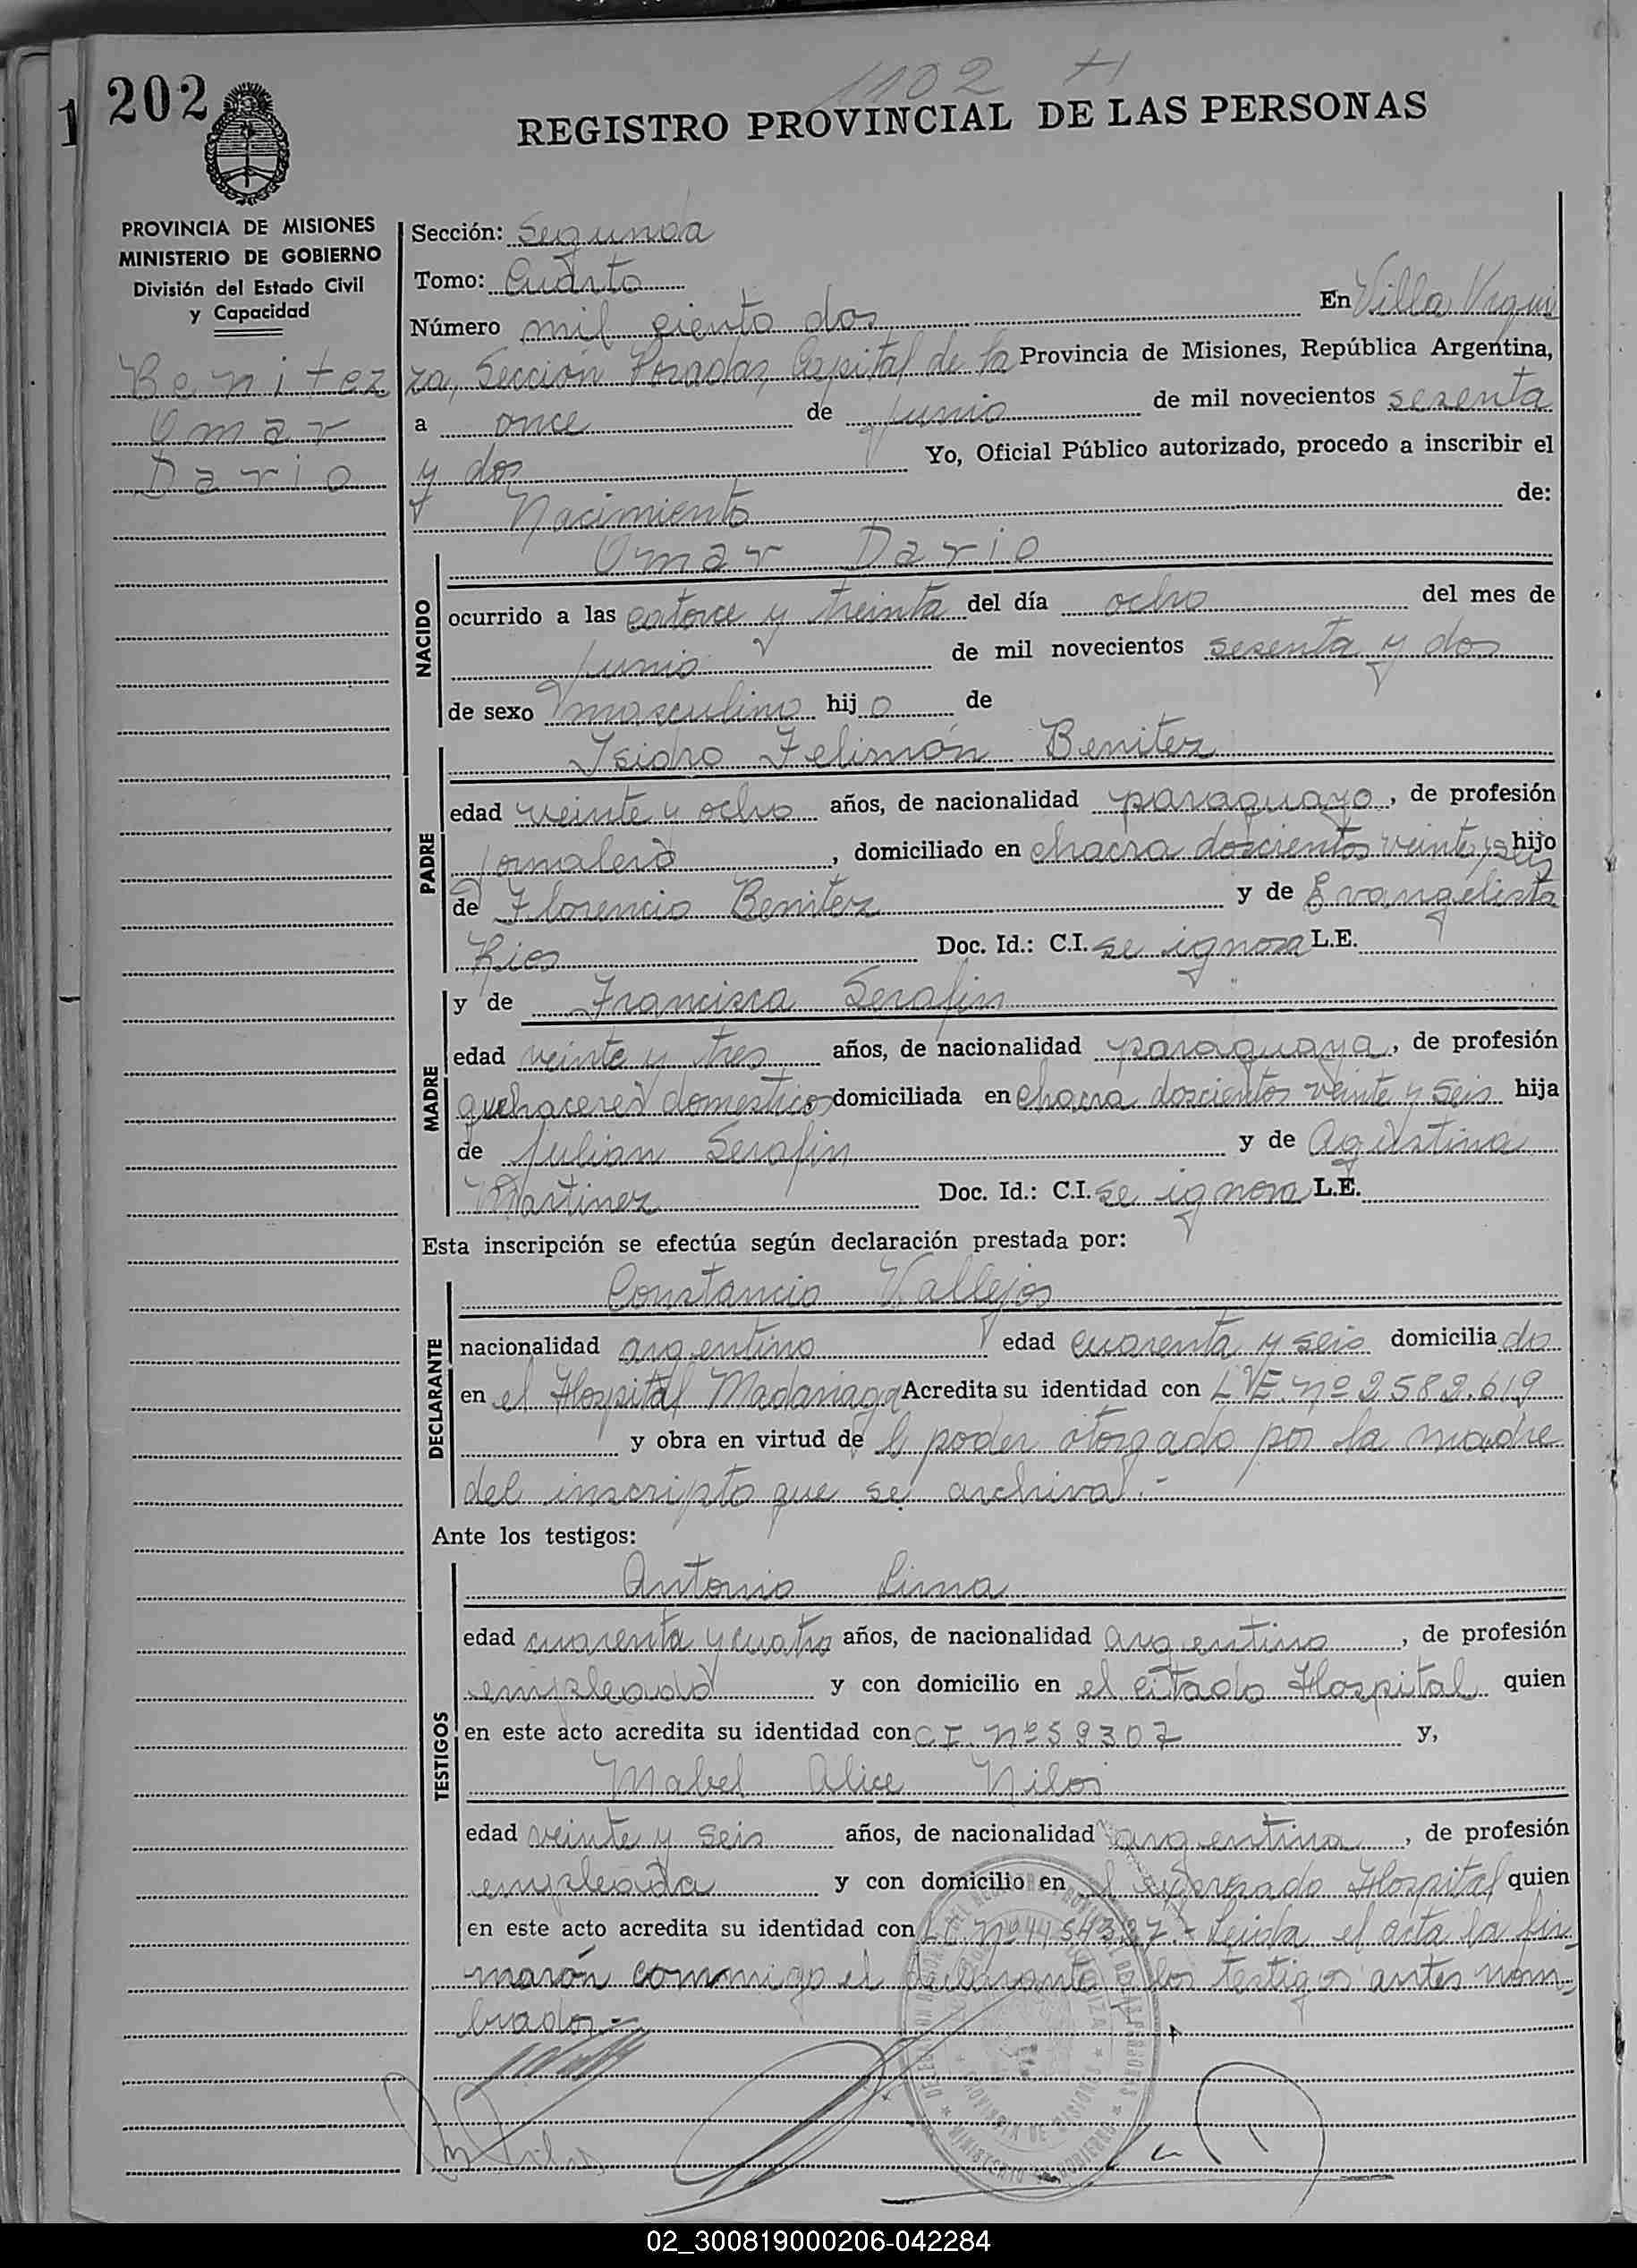 1102 H
202
1
REGISTRO PROVINCIAL DE LAS PERSONAS
PROVINCIA DE MISIONES
MINISTERIO DE GOBIERNO
División del Estado Civil
y Capacidad
Benitez
Omar
Dario
Sección: Segunda
Tomo: Cuarto
Número mil ciento dos En Villa Urqui
za, Sección Posadas, Capital de la Provincia de Misiones, República Argentina,
a once de junio de mil novecientos sesenta
y dos Yo, Oficial Público autorizado, procedo a inscribir el
Nacimiento de:
NACIDO
Omar Dario
ocurrido a las catorce y treinta del día ocho del mes de
junio de mil novecientos sesenta y dos
de sexo masculino hijo de
PADRE
Isidro Felimón Benitez
edad veinte y ocho años, de nacionalidad paraguayo, de profesión
jornalero, domiciliado en chacra doscientos veinte y seis hijo
de Florencio Benitez y de Evangelista
Rios Doc. Id.: C.I. se ignora L.E.
MADRE
y de Francisca Serafin
edad veinte y tres años, de nacionalidad paraguaya, de profesión
quehaceres domesticos domiciliada en chacra doscientos veinte y seis hija
de Julian Serafin y de Agustina
Martinez Doc. Id.: C.I. se ignora L.E.
Esta inscripción se efectúa según declaración prestada por:
DECLARANTE
Constancio Vallejos
nacionalidad argentino edad cuarenta y seis domiciliado
en el Hospital Madariaga Acredita su identidad con L.E. nº 2.582.619
y obra en virtud de l poder otorgado por la madre
del inscripto que se archiva.-
Ante los testigos:
TESTIGOS
Antonio Lima
edad cuarenta y cuatro años, de nacionalidad argentino, de profesión
empleado y con domicilio en el citado Hospital quien
en este acto acredita su identidad con C.I. nº 59307 y,
Mabel Alice Nilos
edad veinte y seis años, de nacionalidad argentina, de profesión
empleada y con domicilio en el expresado Hospital quien
en este acto acredita su identidad con L.C. nº 4454327.- Leida el acta la fir
marón conmigo el declarante y los testigos antes nom
brados.-
PROVINCIA DE MISIONES
MINISTERIO DE GOBIERNO
02_300819000206-042284